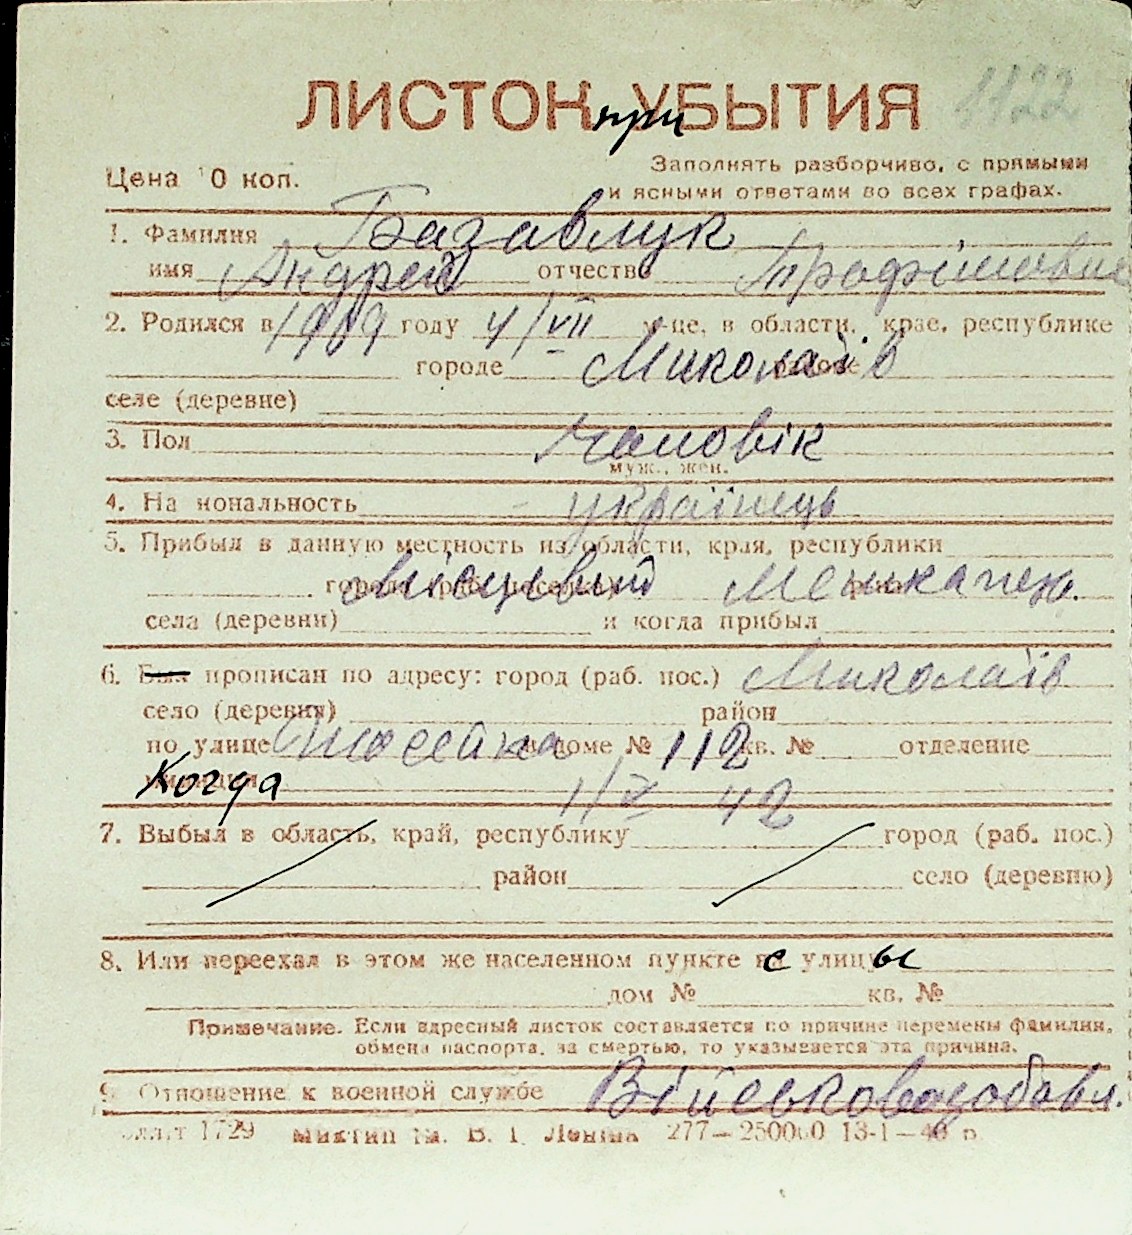 1122
ЛИСТОК при УБЫТИЯ
Цена 10 коп.
Заполнять разборчиво, с прямыми
и ясными ответами во всех графах.
1. Фамилия Базавлук
имя Андрей отчество Трофімович
2. Родился в 1909 году 4/VII м-це, в области, крае, республике
городе Миколаїв
селе (деревне)
3. Пол чоловік
муж., жен.
4. На иональность українець
5. Прибыл в данную местность из области, края, республики
місцевий мешканец.
села (деревни) и когда прибыл
6. Был прописан по адресу: город (раб. пос.) Миколаїв
село (деревня) район
по улице в доме № 112 кв. № отделение
Когда 1/V 42
7. Выбыл в область, край, республику город (раб. пос.)
район село (деревню)
8. Или переехал в этом же населенном пункте с улицы
дом № кв. №
Примечание. Если адресный листок составляется по причине перемены фамилии,
обмена паспорта, за смертью, то указывается эта причина.
9. Отношение к военной службе Військовозобовл.
1729 277—250000 13-1—40 р.